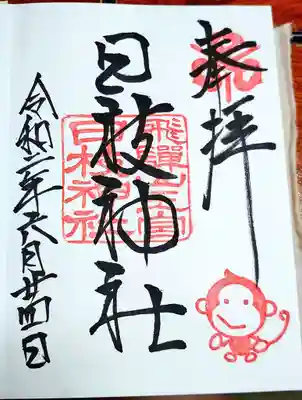 奉拝
日枝神社
飛驒山王宮
日枝神社
令和二年六月廿四日